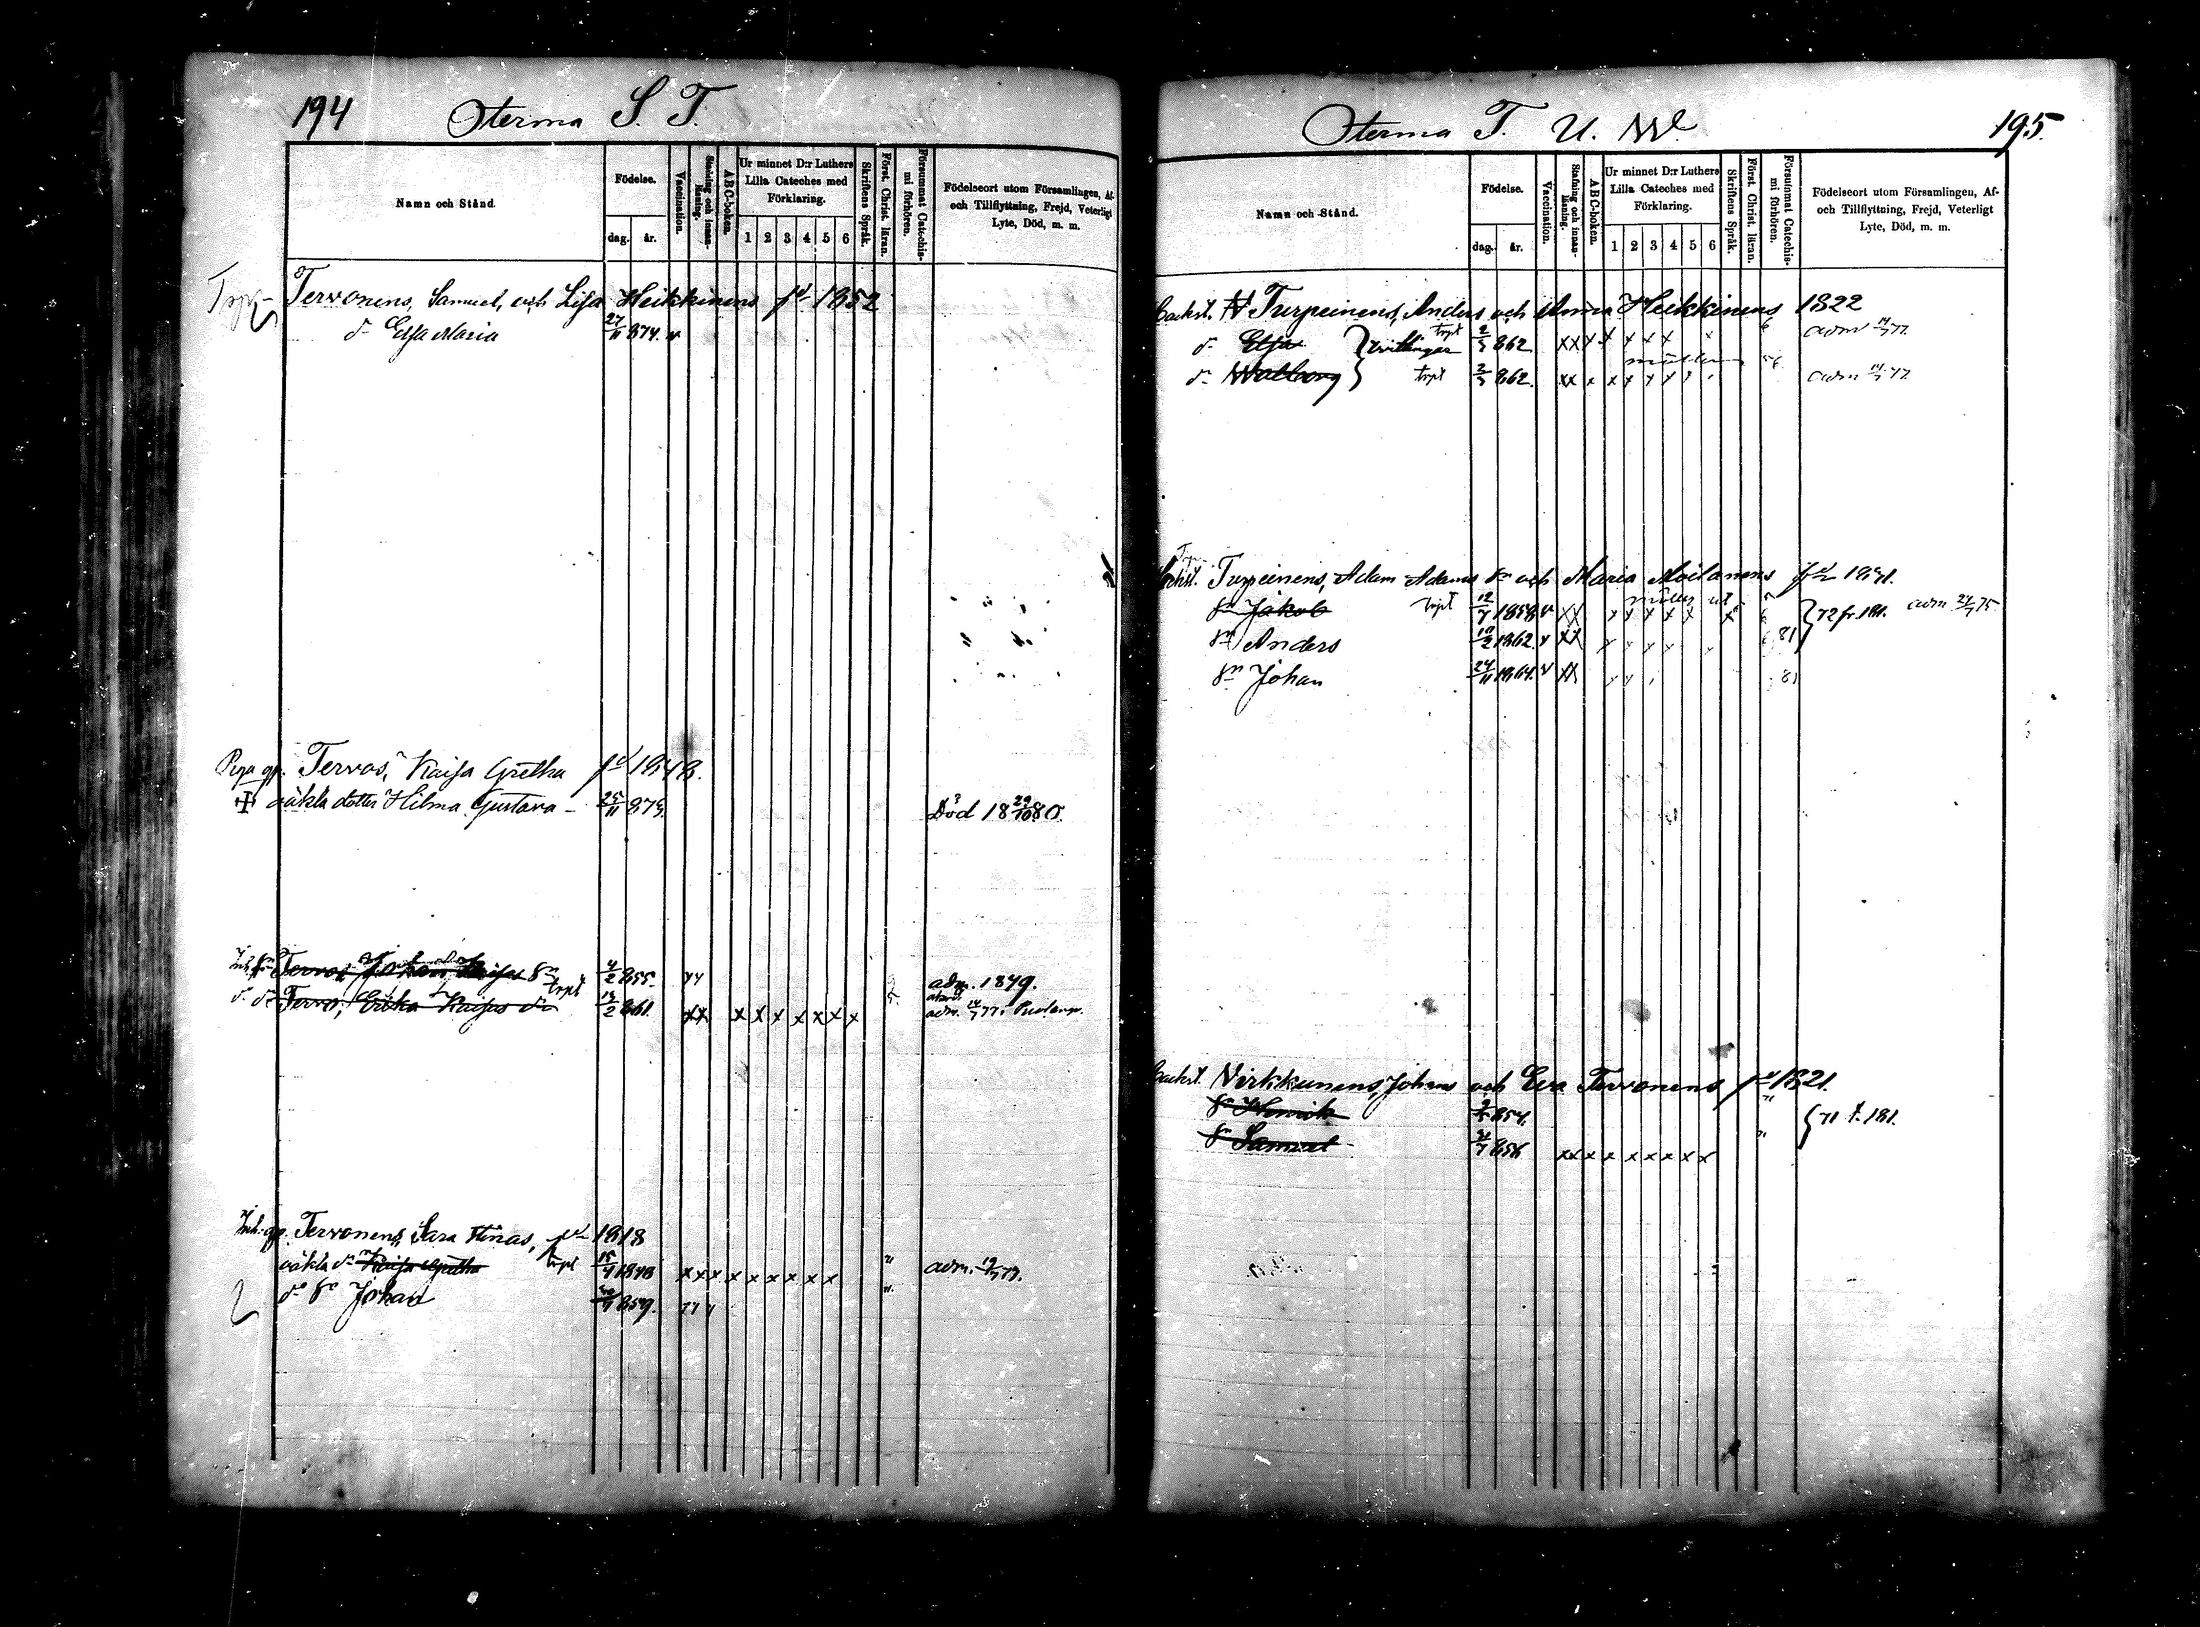 194
Oterma S. T.
Namn och Stånd.
Födelse.
dag. år.
Vaccination.
Stafning och innan-läsning.
A B C-boken.
Ur minnet D:r Luthers Lilla Cateches med Förklaring.
1 2 3 4 5 6
Skriftens Språk.
Först. Christ. läran.
Försummat Catechismi förhören.
Födelseort utom Församlingen, Af- och Tillflyttning, Frejd, Veterligt Lyte, Död, m. m.
Tervonens, Samuel, och Lisa Heikkinens fd 1852
dr Elsa Maria 27/11 874. v
Piga gp. Tervos, Kaisa Gretha fd 1848.
oäkta dotter Hilma Gustava - 25/11 879. Död 18 29/10 80.
Tervos, Johan, Kaisas sn 4/2 855. adm. 1879.
Tervos, Erika Kaisas dr 13/2 861. x x x x x x x x x adm. 14/7 77.
Inh. gp. Tervonens, Sara Stinas, fd 1818
oäkta dr Kaisa Gretha 15/4 1848 x x x x x x x x x " adm.
do sn Johan 859. "
Oterma T. U. W
195
Namn och Stånd.
Födelse.
dag. år.
Vaccination.
Stafning och innan-läsning.
A B C-boken.
Ur minnet D:r Luthers Lilla Cateches med Förklaring.
1 2 3 4 5 6
Skriftens Språk.
Först. Christ. läran.
Försummat Catechismi förhören.
Födelseort utom Församlingen, Af- och Tillflyttning, Frejd, Veterligt Lyte, Död, m. m.
Backst. Turpeinens, Anders och Anna Heikkinens 1822
dr Elsa } tvillingar 2/3 862. x x x x x x x x adm 14/7 77.
dr Walborg } 2/3 862. x x x x x x x x adm 14/7 77.
Backst. Turpeinens, Adam Adams sn och Maria Moilanens fd 1831.
sn Jakob 12/7 1858. v x x x x x x x x } 72 fr. 181. adm 24/7 75
sn Anders 1862. v x x 81
sn Johan 24/11 1864. v x x 81
Backst. Virkkunens, Johans och Eva Tervonens fd 1821.
sn Henrik 854. " } 71 f. 181.
sn Samuel 856 x x x x x x x x "